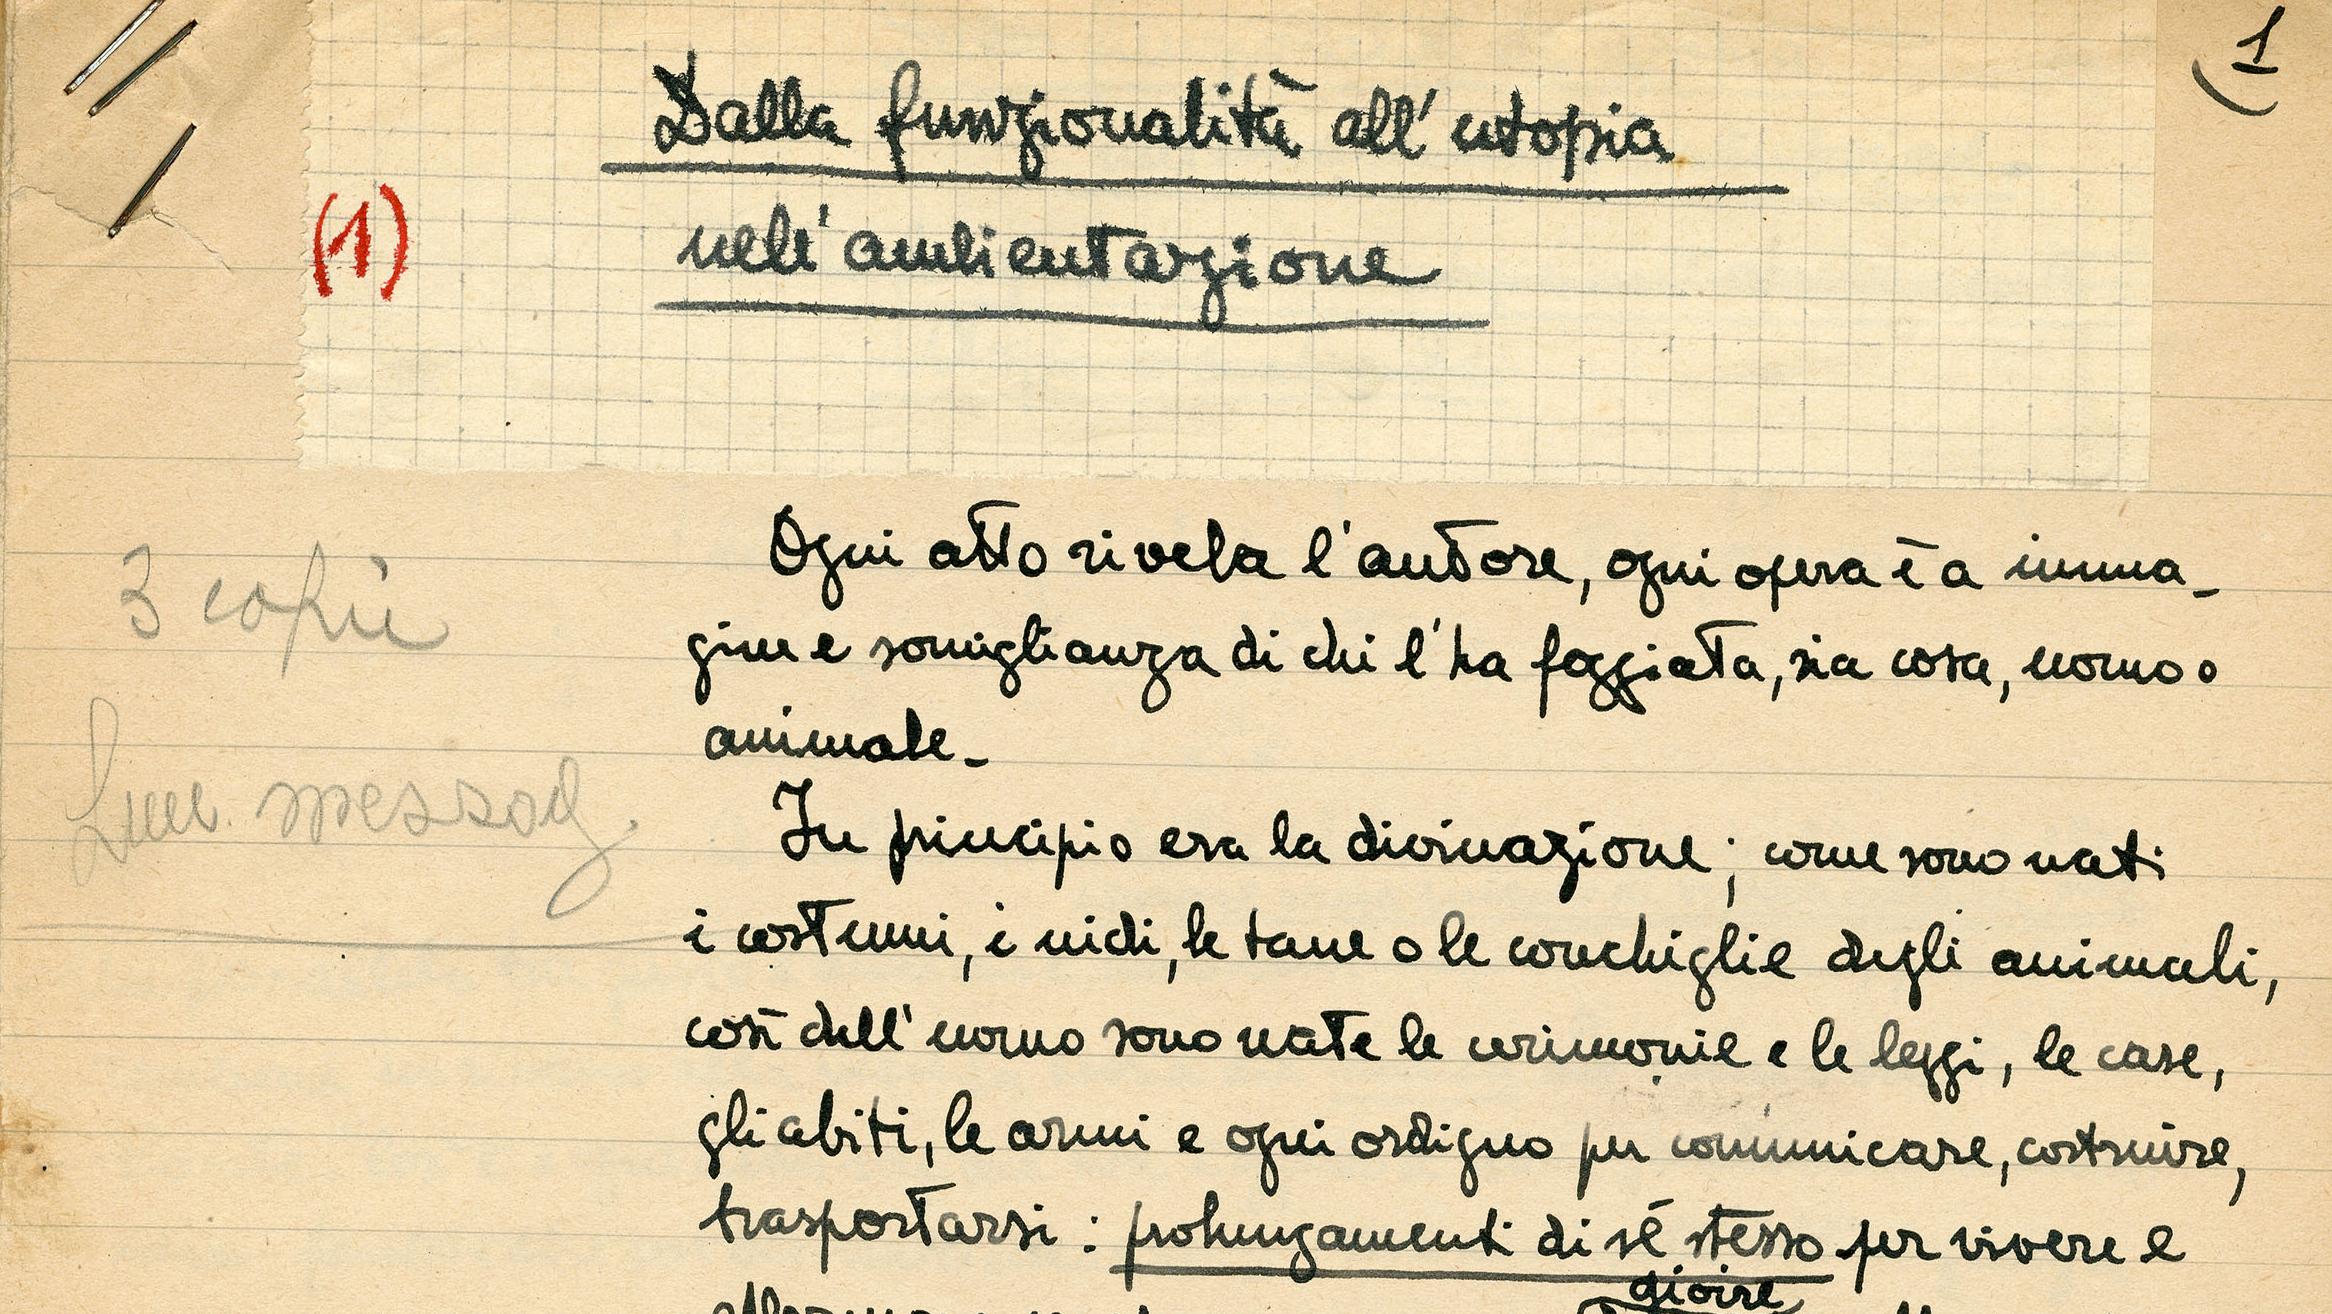 1
Dalla funzionalità all'utopia
(1)
nell'ambientazione
Ogni atto rivela l'autore, ogni opera è a imma_
3 copie
gine e somiglianza di chi l'ha foggiata, sia cosa, uomo o
animale_
In principio era la divinazione; come sono nati
i costumi, i nidi, le tane o le conchiglie degli animali,
così dall'uomo sono nate le cerimonie e le leggi, le case,
gli abiti, le armi e ogni ordigno per comunicare, costruire,
trasportarsi: prolungamenti di sé stesso per vivere e
gioire